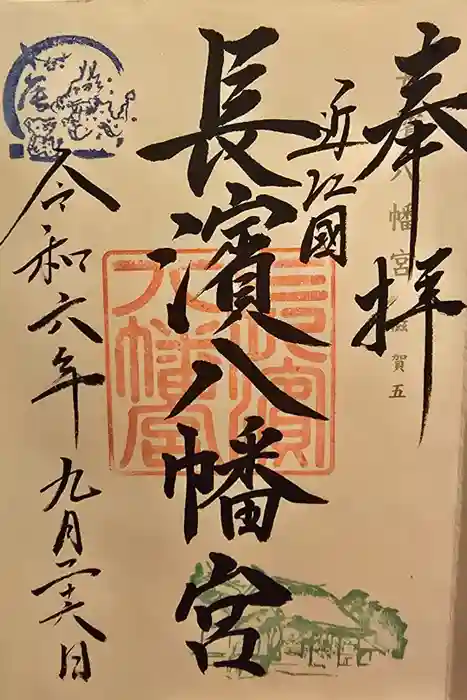 奉拝
八幡宮 滋賀五
近江國
長濱八幡宮
長濱
八幡宮
令和六年九月二十六日